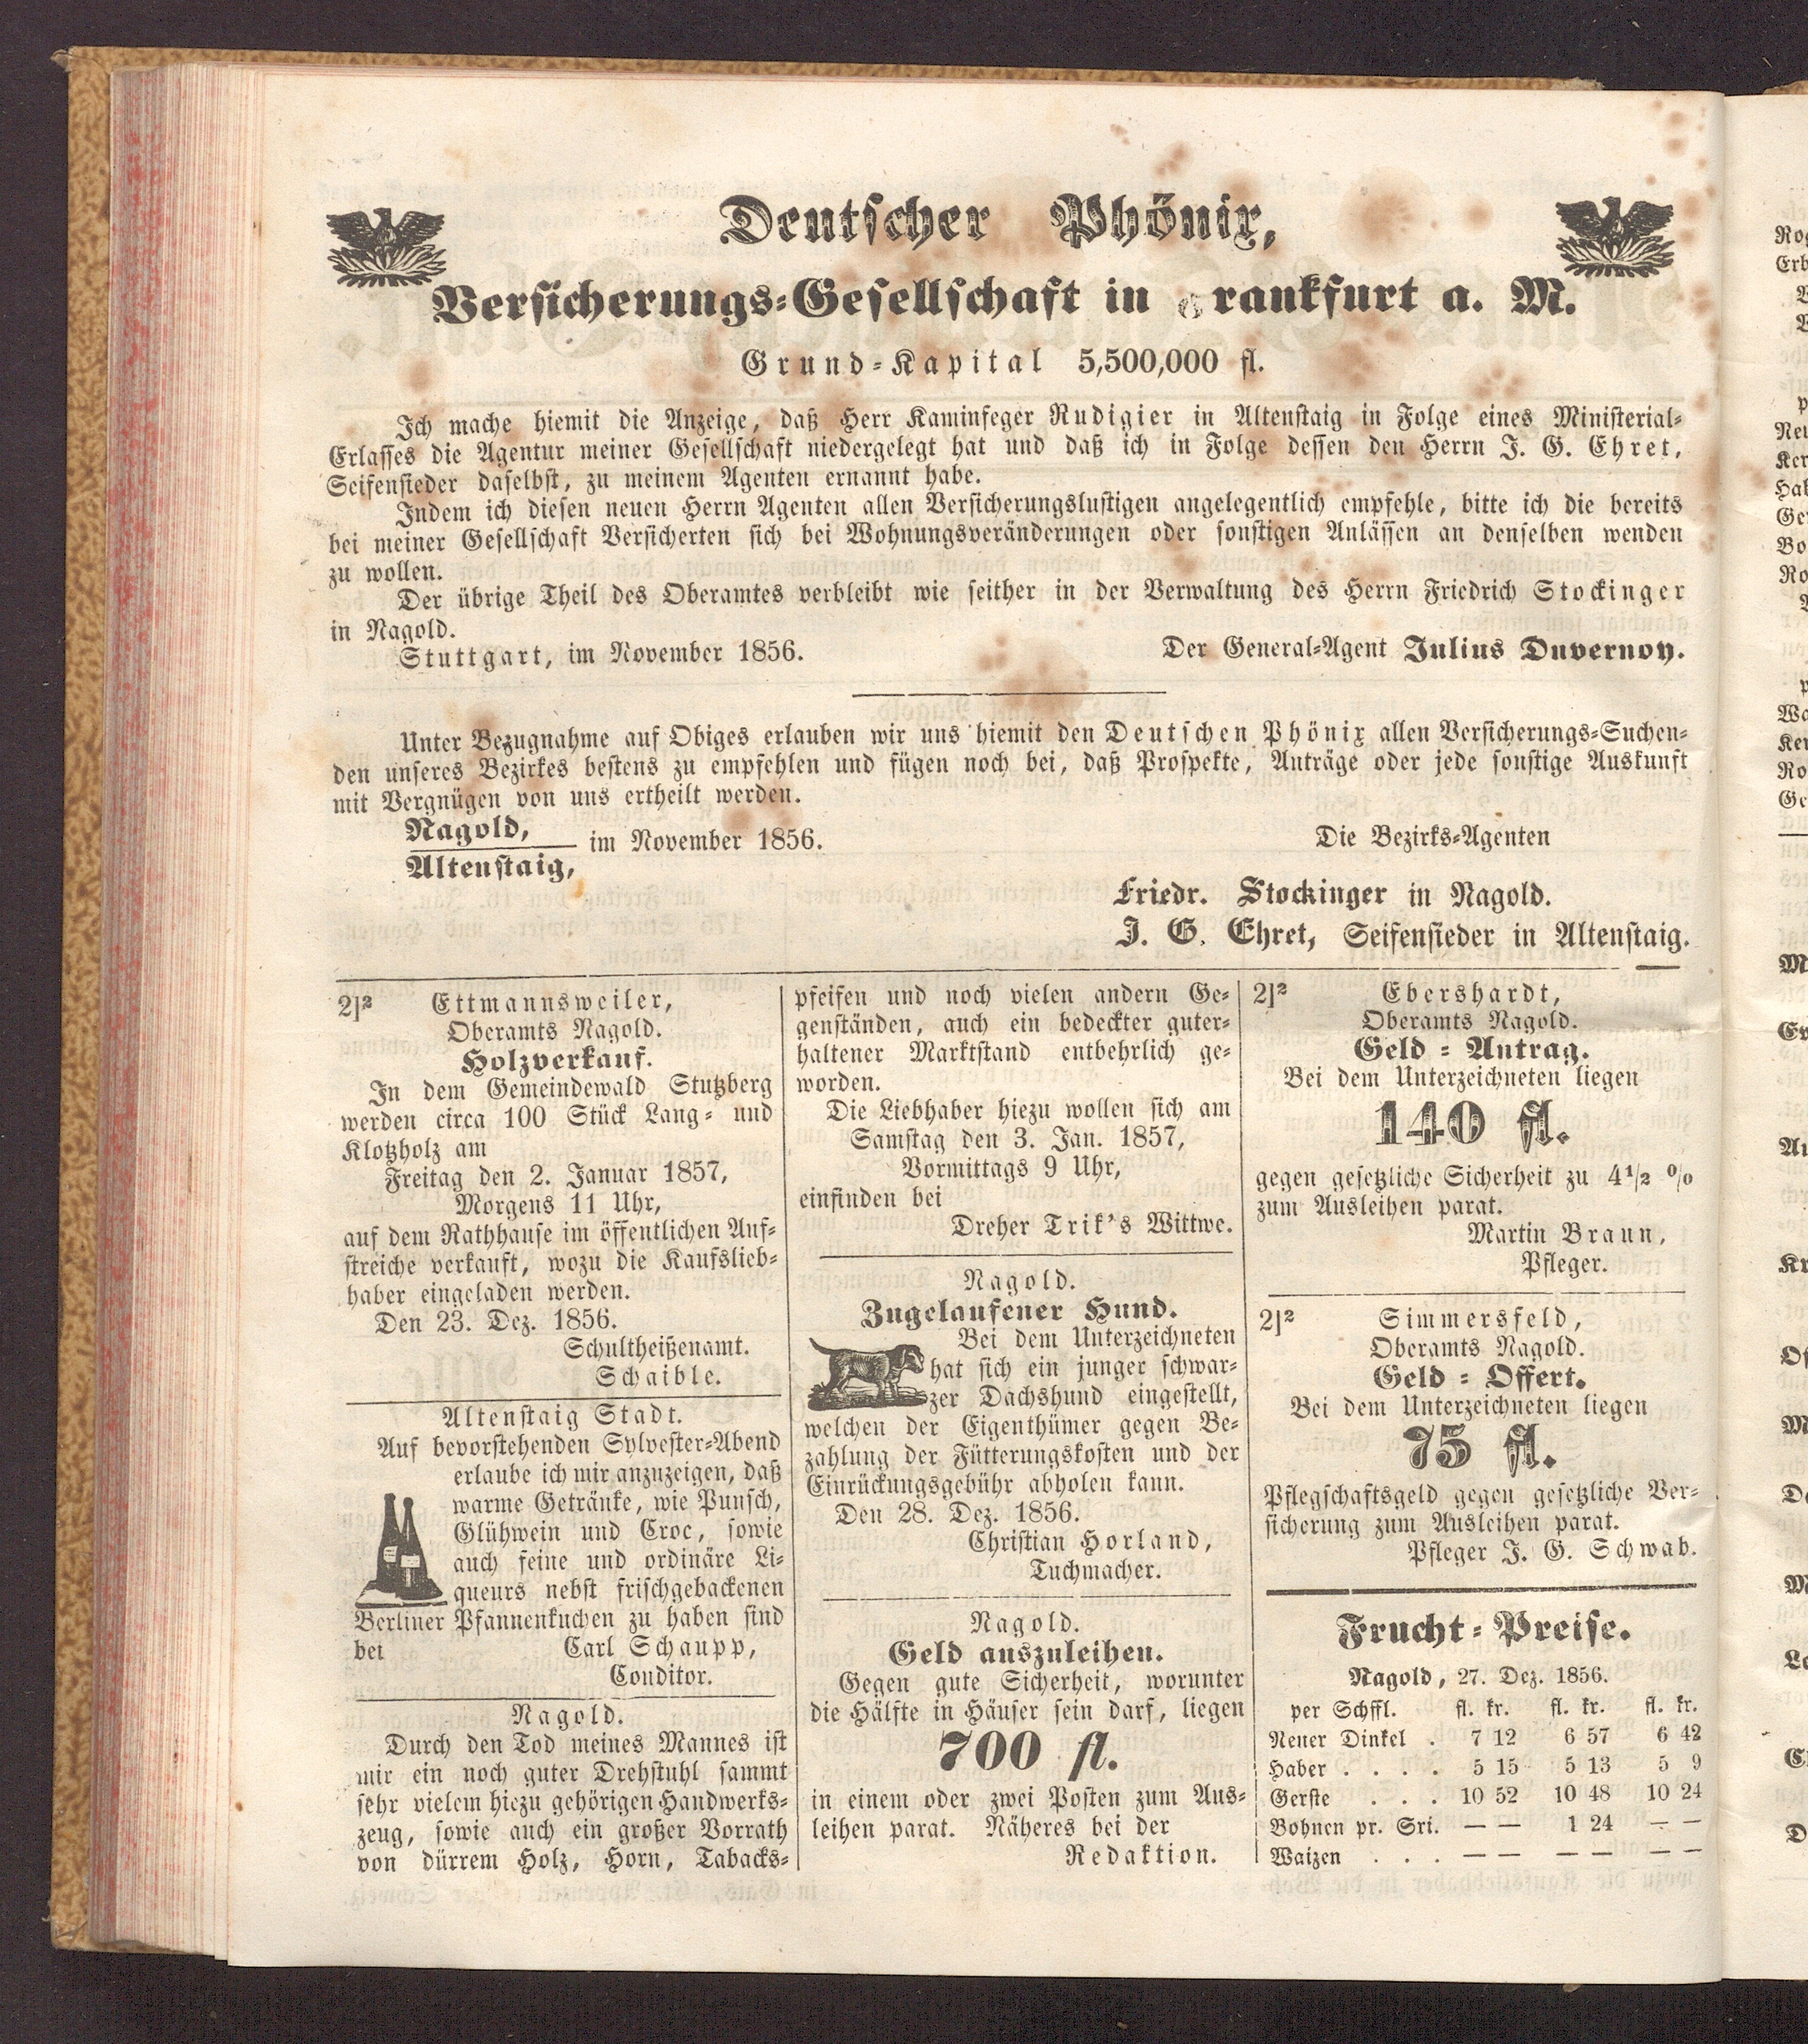 Deutscher Phönix,
Versicherungs-Gesellschaft in Frankfurt a. M.
Grund-Kapital 5,500,000 fl.
Ich mache hiemit die Anzeige, daß Herr Kaminfeger Rudigier in Altenstaig in Folge eines Ministerial-
Erlasses die Agentur meiner Gesellschaft niedergelegt hat und daß ich in Folge dessen den Herrn J. G. Ehret,
Seifensieder daselbst, zu meinem Agenten ernannt habe.
Indem ich diesen neuen Herrn Agenten allen Versicherungslustigen angelegentlich empfehle, bitte ich die bereits
bei meiner Gesellschaft Versicherten sich bei Wohnungsveränderungen oder sonstigen Anlässen an denselben wenden
zu wollen.
Der übrige Theil des Oberamtes verbleibt wie seither in der Verwaltung des Herrn Friedrich Stockinger
in Nagold.
Stuttgart, im November 1856. Der General-Agent Julius Duvernoy.
Unter Bezugnahme auf Obiges erlauben wir uns hiemit den Deutschen Phönix allen Versicherungs-Suchen-
den unseres Bezirkes bestens zu empfehlen und fügen noch bei, daß Prospekte, Anträge oder jede sonstige Auskunft
mit Vergnügen von uns ertheilt werden.
Nagold,
im November 1856. Die Bezirks-Agenten
Altenstaig,
Friedr. Stockinger in Nagold.
J. G. Ehret, Seifensieder in Altenstaig.
2]² Ettmannsweiler,
Oberamts Nagold.
Holzverkauf.
In dem Gemeindewald Stutzberg
werden circa 100 Stück Lang- und
Klotzholz am
Freitag den 2. Januar 1857,
Morgens 11 Uhr,
auf dem Rathhause im öffentlichen Auf-
streiche verkauft, wozu die Kaufslieb-
haber eingeladen werden.
Den 23. Dez. 1856.
Schultheißenamt.
Schaible.
Altenstaig Stadt.
Auf bevorstehenden Sylvester-Abend
erlaube ich mir anzuzeigen, daß
warme Getränke, wie Punsch,
Glühwein und Croc, sowie
auch feine und ordinäre Li-
queurs nebst frischgebackenen
Berliner Pfannenkuchen zu haben sind
bei Carl Schaupp,
Conditor.
Nagold.
Durch den Tod meines Mannes ist
mir ein noch guter Drehstuhl sammt
sehr vielem hiezu gehörigen Handwerks-
zeug, sowie auch ein großer Vorrath
von dürrem Holz, Horn, Tabacks-
pfeifen und noch vielen andern Ge-
genständen, auch ein bedeckter guter-
haltener Marktstand entbehrlich ge-
worden.
Die Liebhaber hiezu wollen sich am
Samstag den 3. Jan. 1857,
Vormittags 9 Uhr,
einfinden bei
Dreher Trik's Wittwe.
Nagold.
Zugelaufener Hund.
Bei dem Unterzeichneten
hat sich ein junger schwar-
zer Dachshund eingestellt,
welchen der Eigenthümer gegen Be-
zahlung der Fütterungskosten und der
Einrückungsgebühr abholen kann.
Den 28. Dez. 1856.
Christian Horland,
Tuchmacher.
Nagold.
Geld auszuleihen.
Gegen gute Sicherheit, worunter
die Hälfte in Häuser sein darf, liegen
700 fl.
in einem oder zwei Posten zum Aus-
leihen parat. Näheres bei der
Redaktion.
2]² Ebershardt,
Oberamts Nagold.
Geld-Antrag.
Bei dem Unterzeichneten liegen
140 fl.
gegen gesetzliche Sicherheit zu 4½ %
zum Ausleihen parat.
Martin Braun,
Pfleger.
2]² Simmersfeld,
Oberamts Nagold.
Geld-Offert.
Bei dem Unterzeichneten liegen
75 fl.
Pflegschaftsgeld gegen gesetzliche Ver-
sicherung zum Ausleihen parat.
Pfleger J. G. Schwab.
Frucht-Preise.
Nagold, 27. Dez. 1856.
per Schffl. fl. kr. fl. kr. fl. kr.
Neuer Dinkel . 7 12 6 57 6 42
Haber . . . . 5 15 5 13 5 9
Gerste . . . 10 52 10 48 10 24
Bohnen pr. Sri. — — 1 24 — —
Waizen . . . — — — — — —